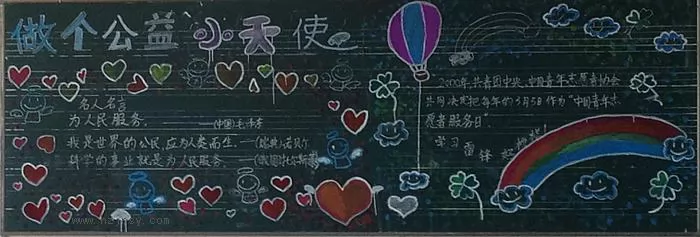 做个公益小天使
名人名言
为人民服务。 ——(中国)毛泽东
我是世界的公民,应为人类而生。——(瑞典)诺贝尔
科学的事业就是为人民服务。——(俄国)托尔斯泰
2000年,共青团中央、中国青年志愿者协会
共同决定把每年的3月5日作为“中国青年志
愿者服务日”
学习
雷锋